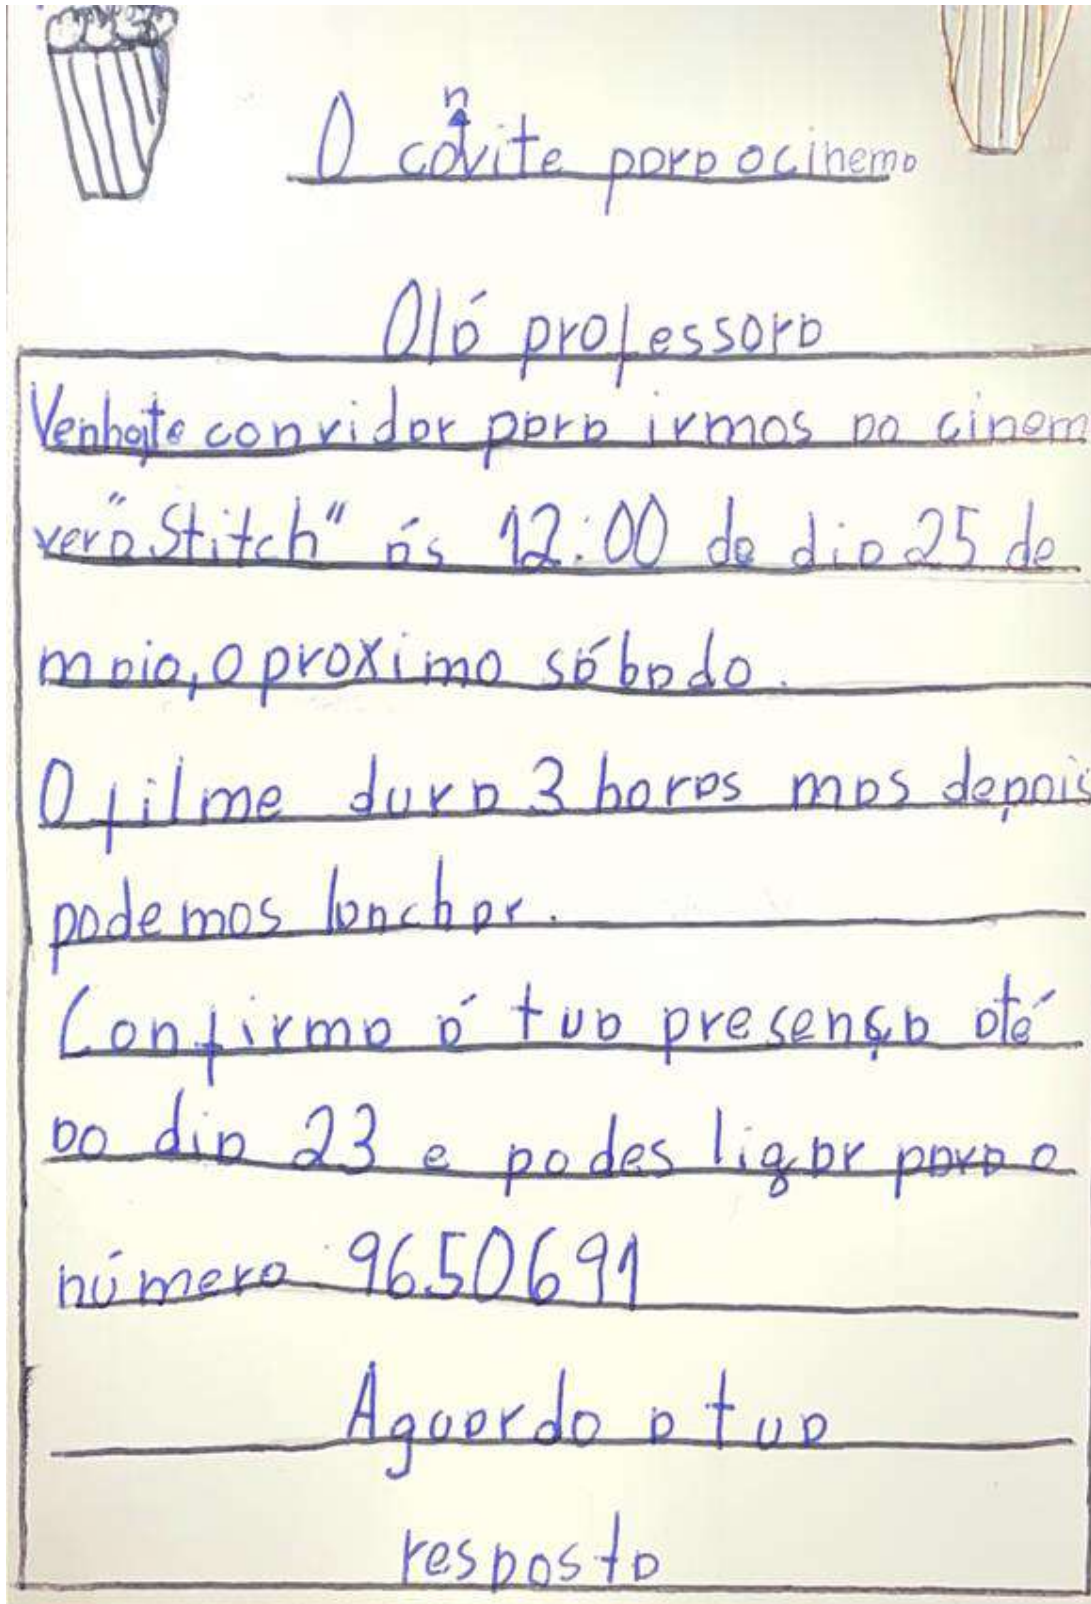 O convite para o cinema
Olá professora
Venho-te convidar para irmos ao cinem
ver "a Stitch" ás 12:00 do dia 25 de
maio, o proximo sábado.
O filme dura 3 horas mas depois
podemos lanchar.
Confirma á tua presença até
ao dia 23 e podes ligar para o
número 9650691
Aguardo a tua
resposta